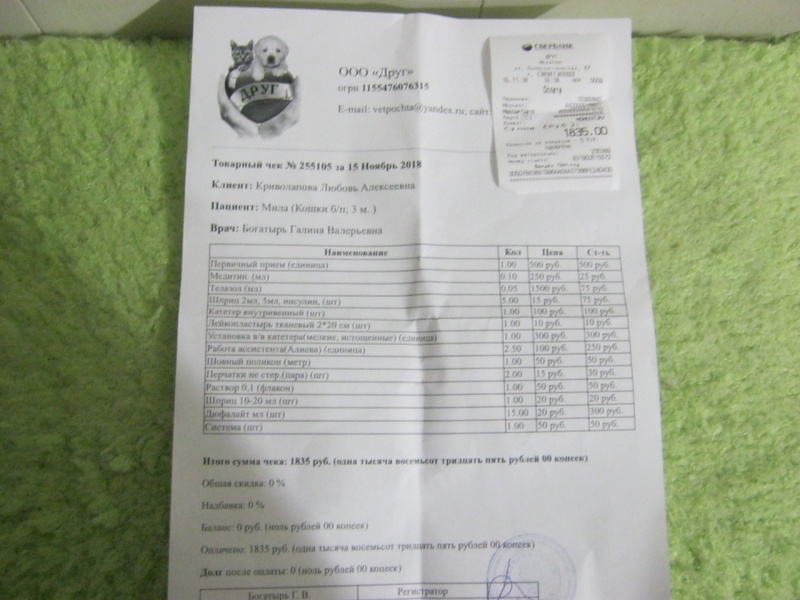 ДРУГ
ООО «Друг»
огрн 1155476076315
E-mail: vetpochta@yandex.ru; сайт:
СБЕРБАНК
ДРУГ
Оплата
1835.00
Товарный чек № 255105 за 15 Ноябрь 2018
Клиент: Криволапова Любовь Алексеевна
Пациент: Мила (Кошки б/п; 3 м. )
Врач: Богатырь Галина Валерьевна
Наименование Кол Цена Ст-ть
Первичный прием (единица) 1.00 500 руб. 500 руб.
Медитин. (мл) 0.10 250 руб. 25 руб.
Телазол (мл) 0.05 1500 руб. 75 руб.
Шприц 2мл, 5мл, инсулин, (шт) 5.00 15 руб. 75 руб.
Катетер внутривенный (шт) 1.00 100 руб. 100 руб.
Лейкопластырь тканевый 2*20 см (шт) 1.00 10 руб. 10 руб.
Установка в/в катетера(мелкие, истощенные) (единица) 1.00 300 руб. 300 руб.
Работа ассистента(Алиева) (единица) 2.50 100 руб. 250 руб.
Шовный поликон (метр) 1.00 50 руб. 50 руб.
Перчатки не стер.(пара) (шт) 2.00 15 руб. 30 руб.
Раствор 0,1 (флакон) 1.00 50 руб. 50 руб.
Шприц 10-20 мл (шт) 1.00 20 руб. 20 руб.
Дюфалайт мл (шт) 15.00 20 руб. 300 руб.
Система (шт) 1.00 50 руб. 50 руб.
Итого сумма чека: 1835 руб. (одна тысяча восемьсот тридцать пять рублей 00 копеек)
Общая скидка: 0 %
Надбавка: 0 %
Баланс: 0 руб. (ноль рублей 00 копеек)
Оплачено: 1835 руб. (одна тысяча восемьсот тридцать пять рублей 00 копеек)
Долг после оплаты: 0 (ноль рублей 00 копеек)
Богатырь Г. В. Регистратор